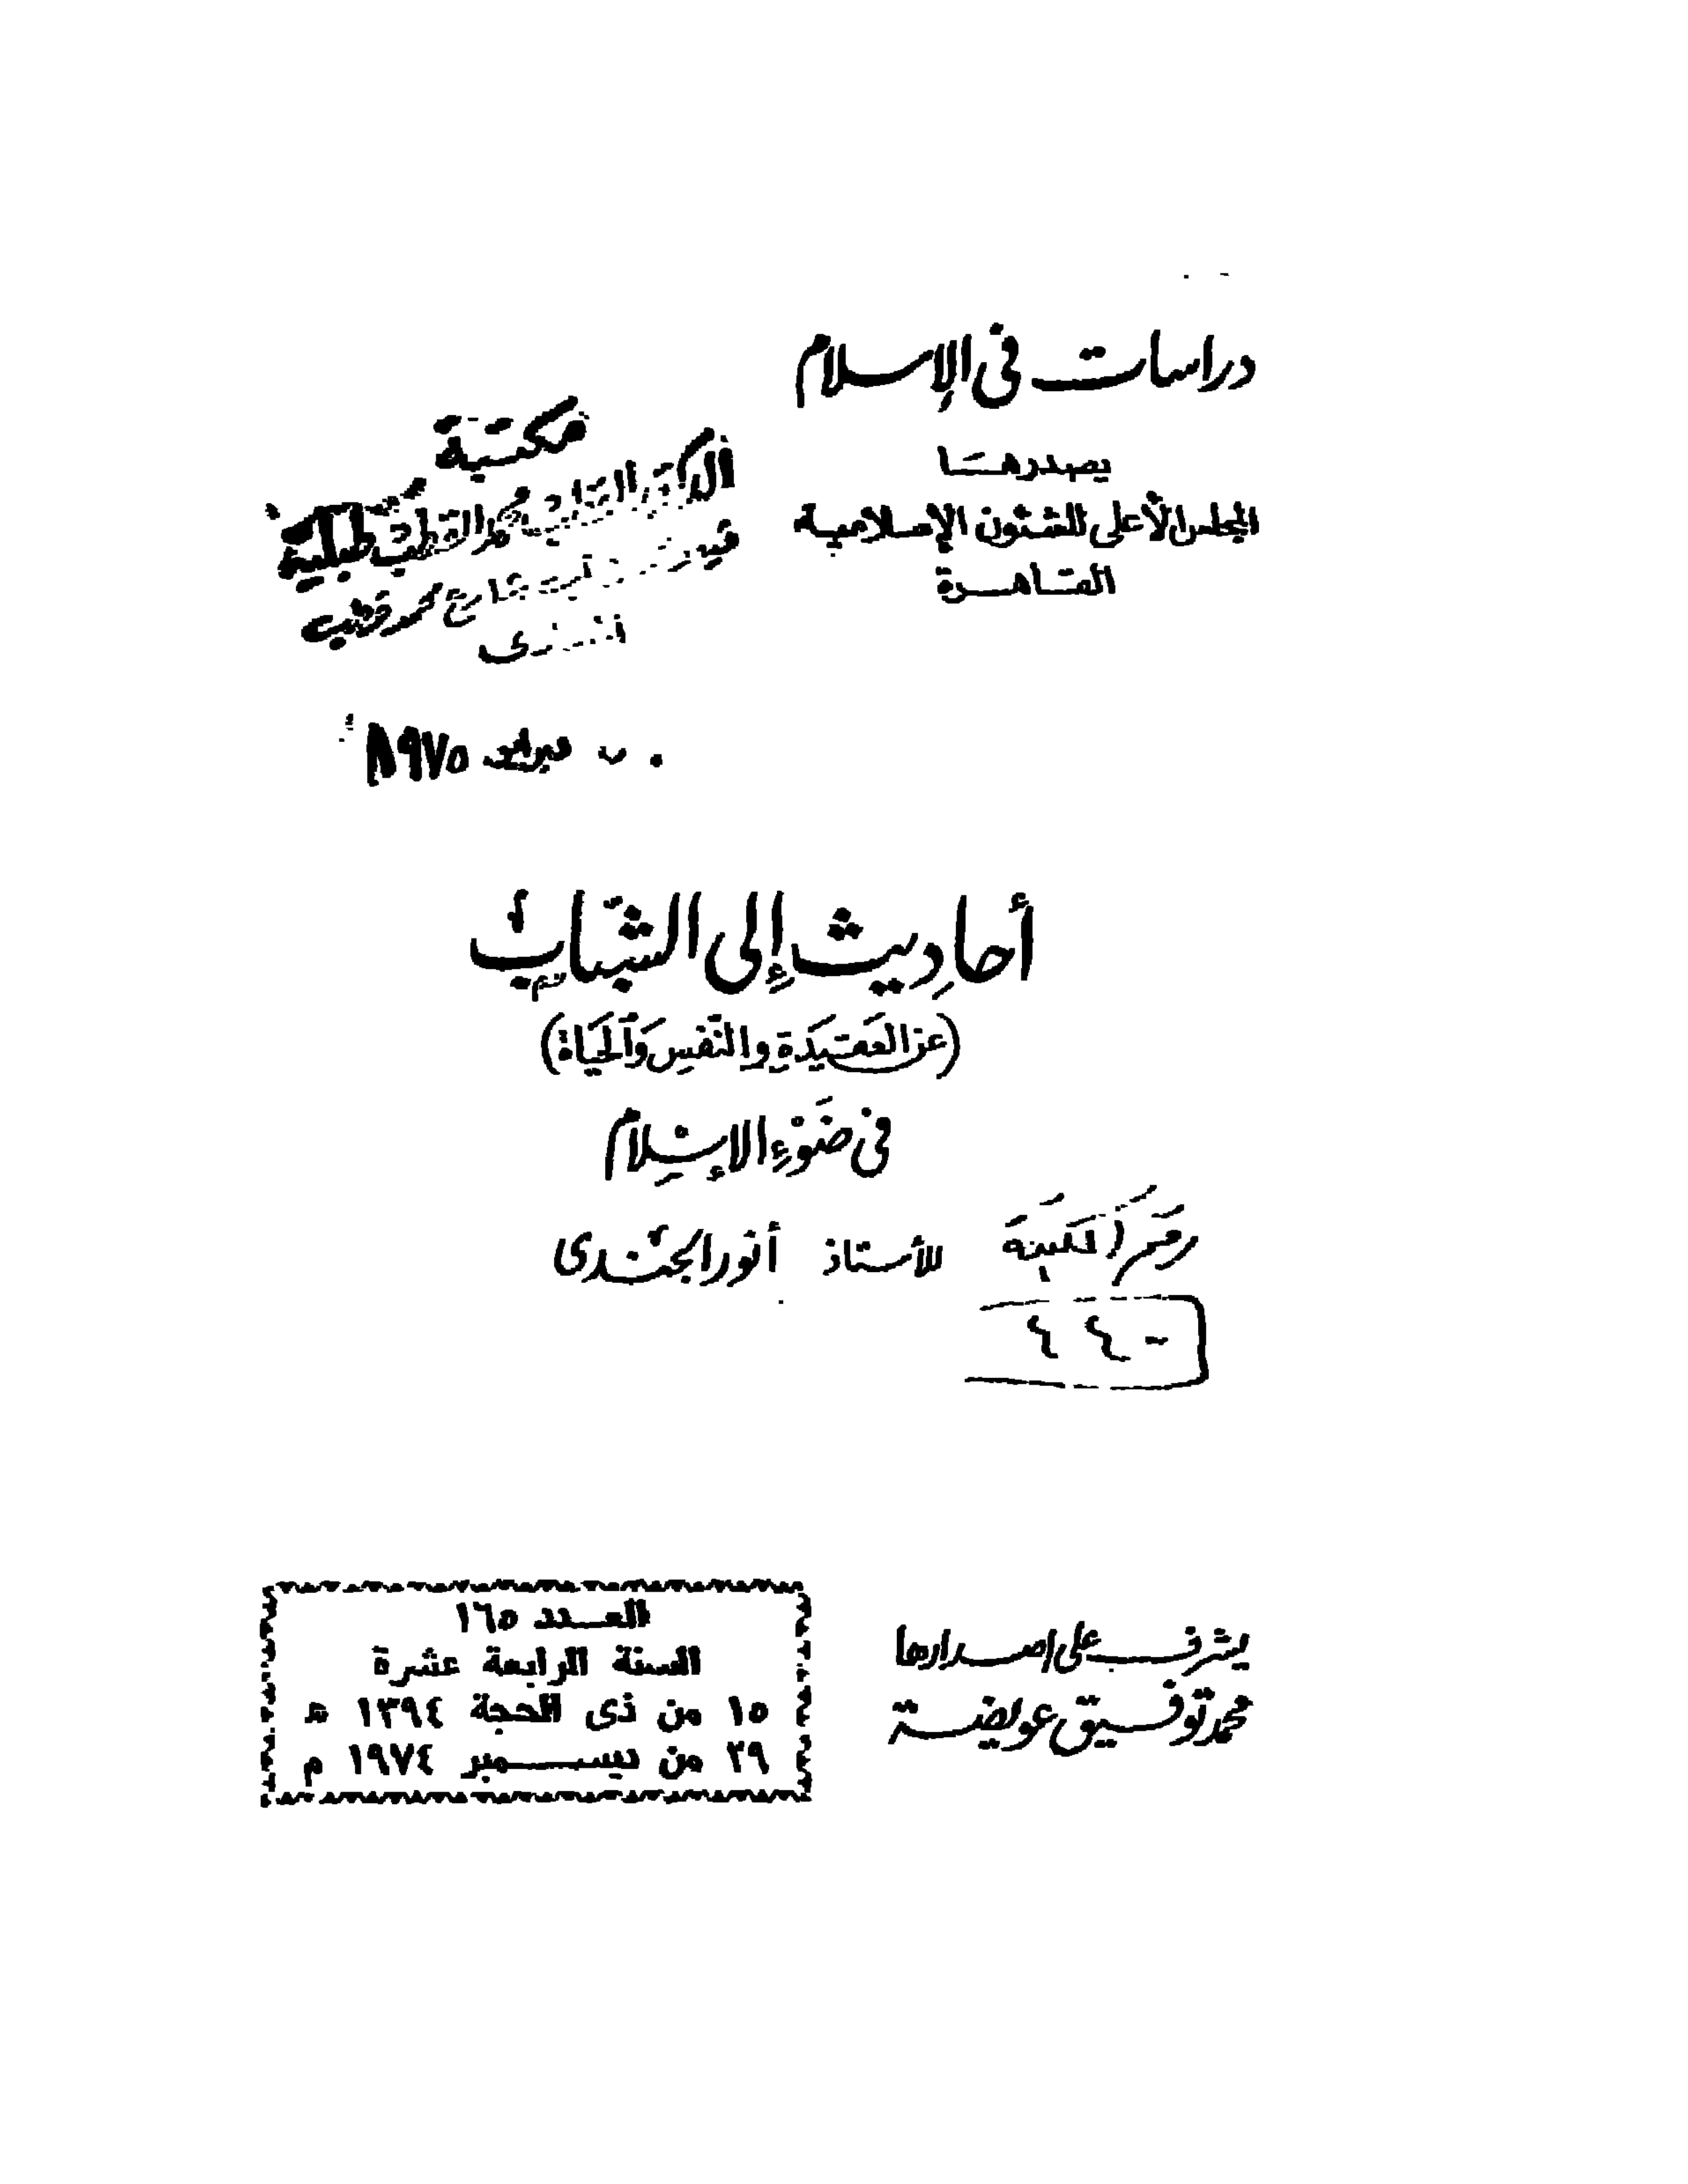 دراسات فى الإسلام
يصدرها
المجلس الأعلى للشئون الإسلامية
القاهرة
مكتبة
الدكتور القطب محمد القطب طبلية
شارع محمد قطب
فبراير ١٩٧٥
أحاديث إلى الشباب
(عن العقيدة والنفس والحياة)
فى ضوء الإسلام
للأستاذ أنور الجندى
رقم المكتبة
٤٤٠
يشرف على إصدارها
محمد توفيق عويضة
العدد ١٦٥
السنة الرابعة عشرة
١٥ من ذى الحجة ١٣٩٤ هـ
٢٩ من ديسمبر ١٩٧٤ م